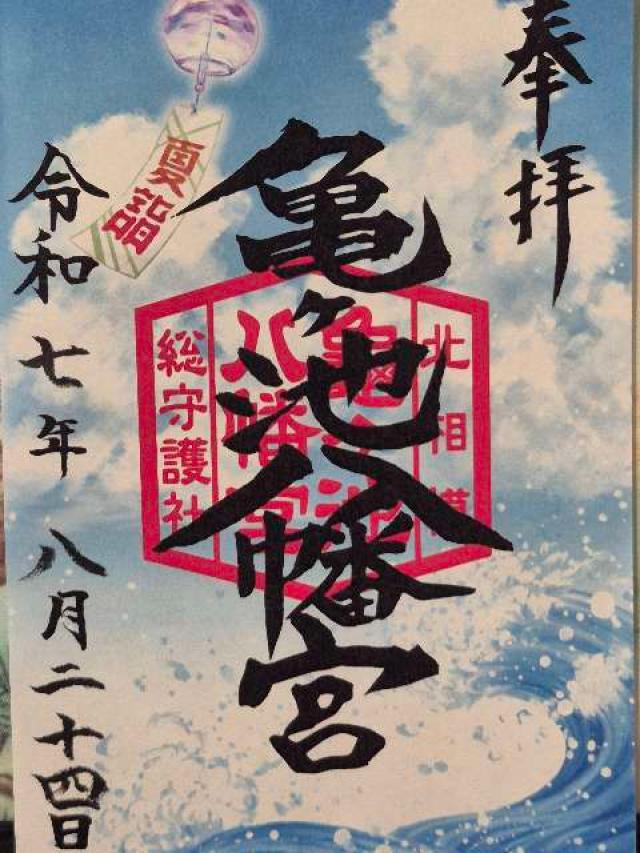 奉拝
夏詣
亀ヶ池八幡宮
北相模
亀ヶ池
八幡宮
総守護社
令和七年八月二十四日